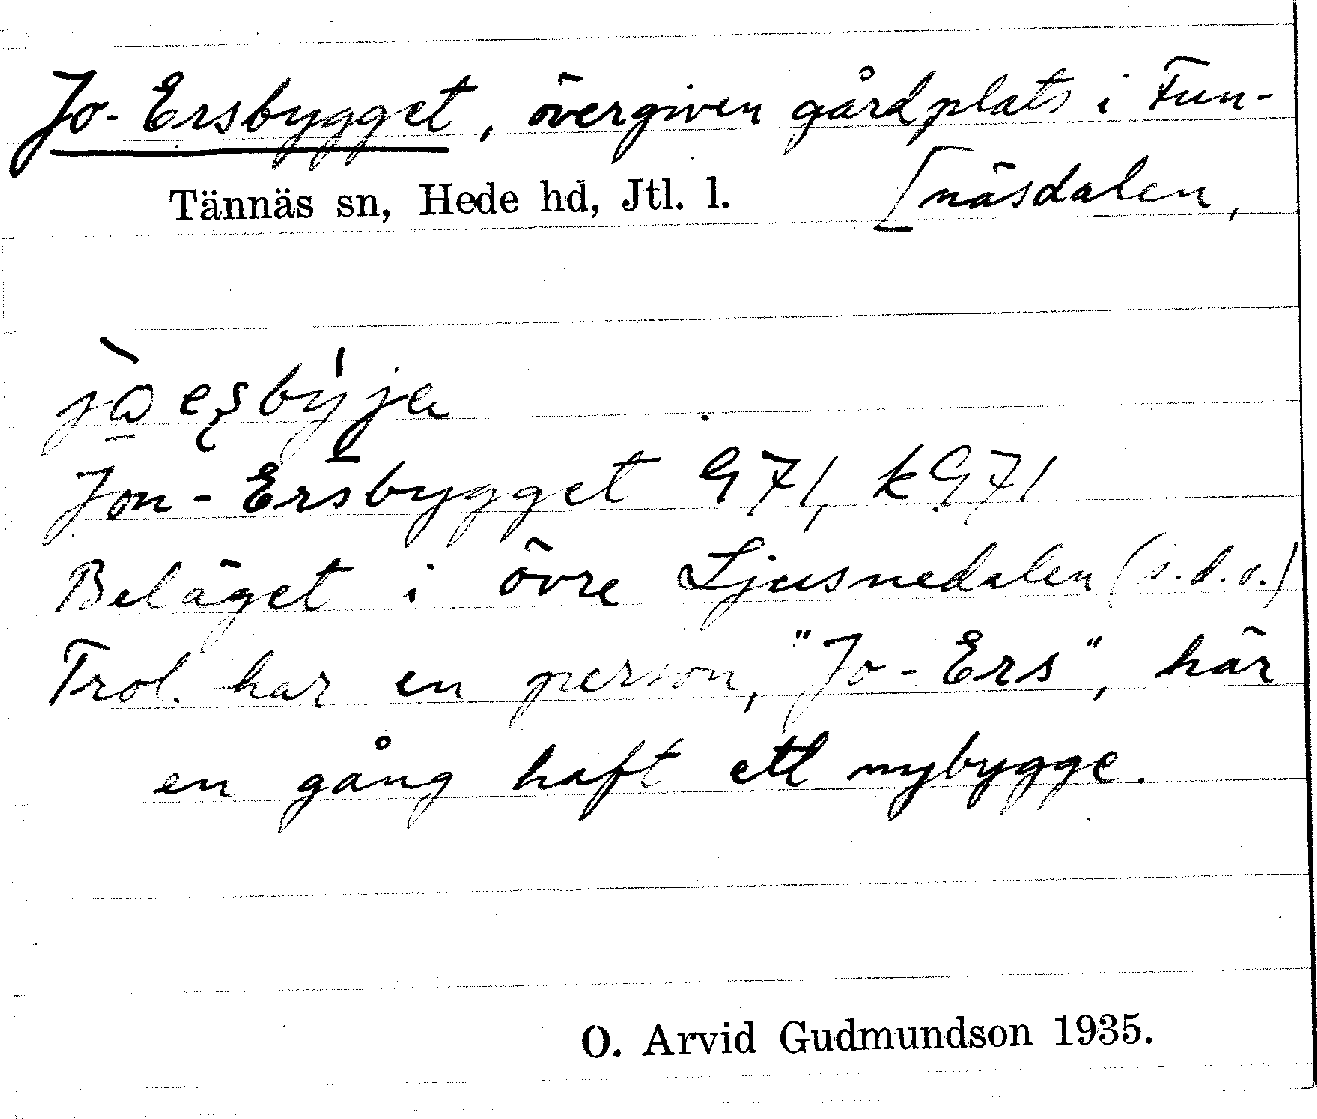 Jo-Ersbygget, övergiven gårdplats i Fun-
[näsdalen,
Tännäs sn, Hede hd, Jtl. l.
Jon-Ersbygget G71, kG71
Beläget i övre Ljusnedalen (s.d.o.)
Trol. har en person, "Jo-Ers", här
en gång haft ett nybygge.
O. Arvid Gudmundson 1935.